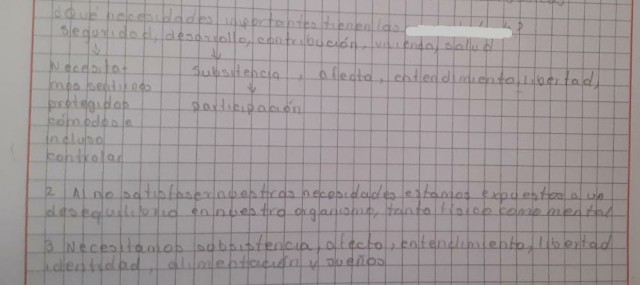 ¿Qué necesidades importantes tienen las ?
Seguridad, desarrollo, contribución, vivienda, salud
Necesitar subsitencia, afecto, entendimiento, libertad,
más sentirnos
protegidos participación
cómodos e
incluso
controlar
2 Al no satisfaser nuestras necesidades estamos expuestos a un
desequilibrio en nuestro organismo, tanto físico como mental
3 Necesitamos subsistencia, afecto, entendimiento, libertad
identidad, alimentación y sueños